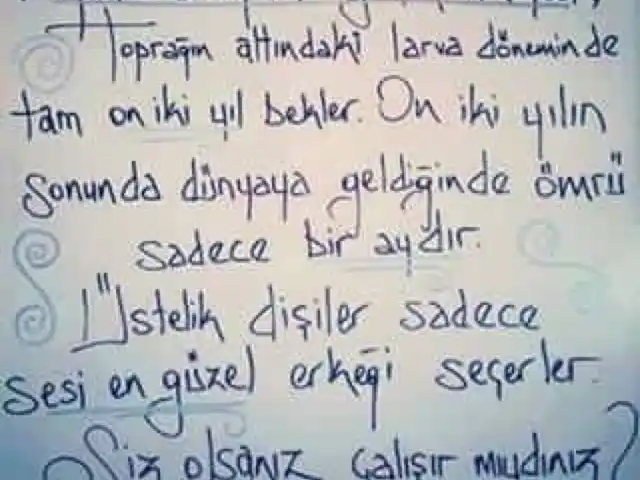 Toprağın altındaki larva döneminde
tam on iki yıl bekler. On iki yılın
sonunda dünyaya geldiğinde ömrü
sadece bir aydır.
Üstelik dişiler sadece
sesi en güzel erkeği seçerler.
Siz olsanız çalışır mıydınız?